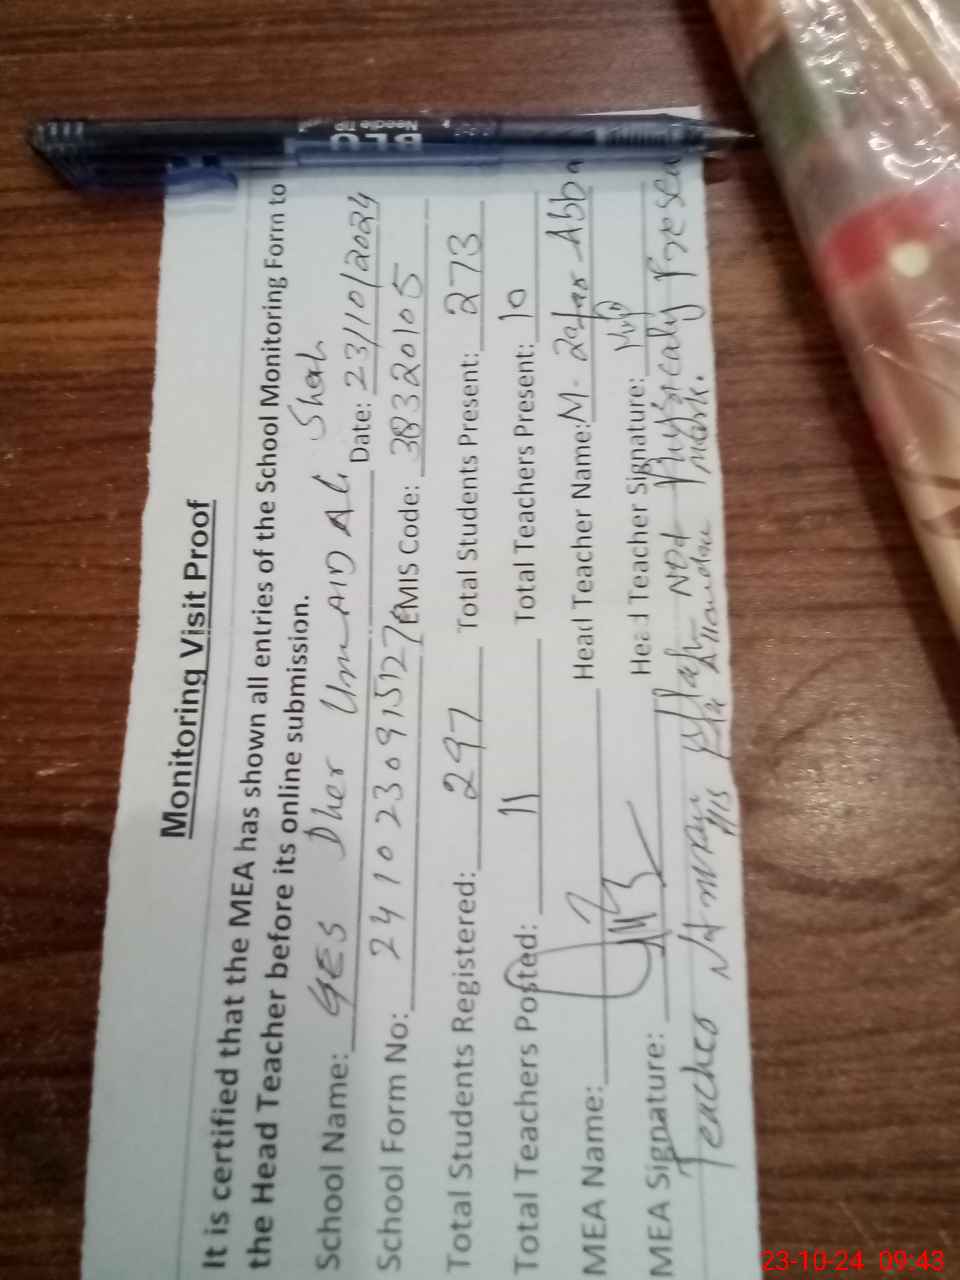 Monitoring Visit Proof
It is certified that the MEA has shown all entries of the School Monitoring Form to
the Head Teacher before its online submission.
School Name: GES Dher UmAID Ali Shah Date: 23/10/2024
School Form No: 241023091527 EMIS Code: 38320105
Total Students Registered: 297 Total Students Present: 273
Total Teachers Posted: 11 Total Teachers Present: 10
MEA Name: Head Teacher Name: M. Zafar Abba
MEA Signature: Head Teacher Signature:
Teacher Not Physicaly Presen
His Mark.
BFC
Needle Tip
23-10-24 09:43